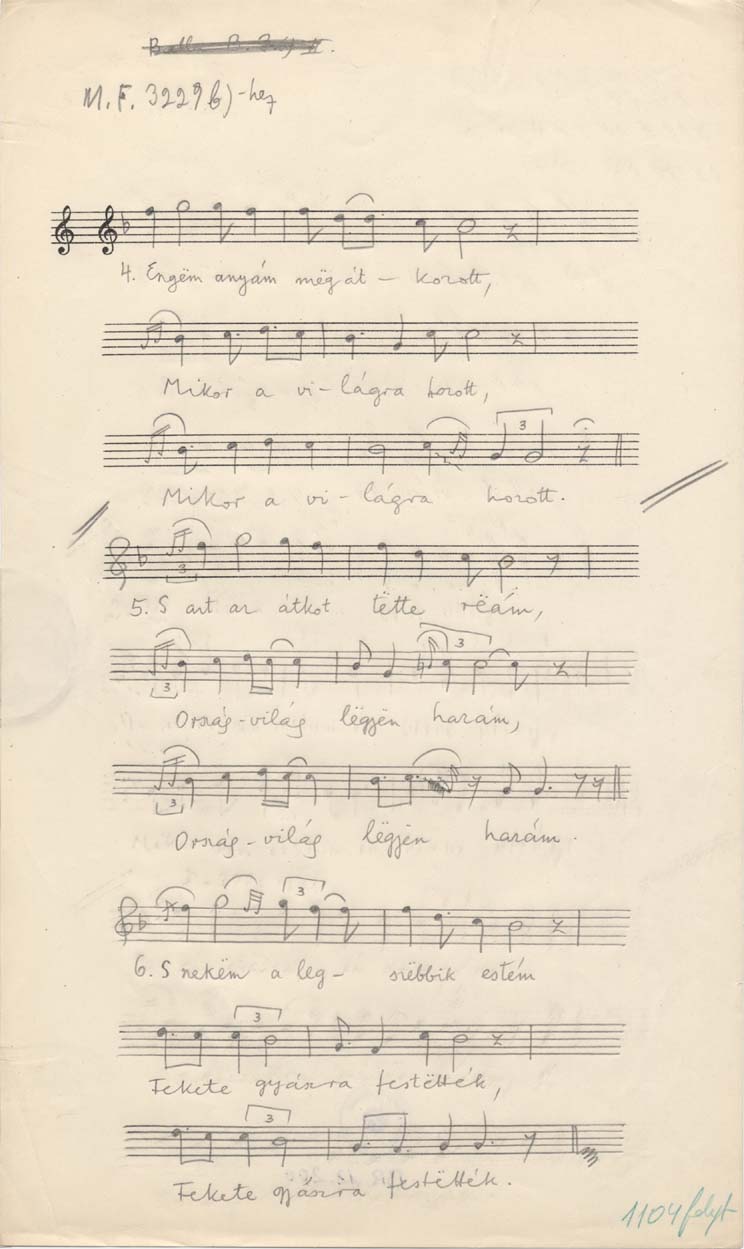 M.F. 3229b)-hez
4. Engëm anyám mëgát – kozott,
Mikor a vi – lágra hozott,
3
Mikor a vi – lágra hozott.
3
5. S azt az átkot tëtte rëám,
3
3
Ország-világ lëgjën hazám,
3
Ország-világ lëgjën hazám.
3
6. S nekëm a leg – szëbbik estém
3
Fekete gyászra festëtték,
3
Fekete gyászra festëtték.
1104 folyt